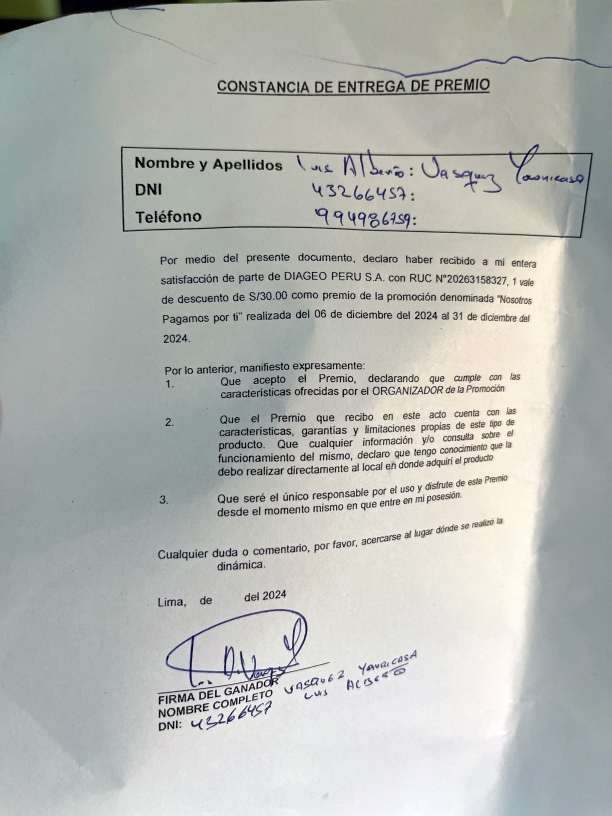 CONSTANCIA DE ENTREGA DE PREMIO
Nombre y Apellidos Luis Alberto: Vasquez Yauricasa
DNI 43266457:
Teléfono 994986759:
Por medio del presente documento, declaro haber recibido a mi entera
satisfacción de parte de DIAGEO PERU S.A. con RUC N°20263158327, 1 vale
de descuento de S/30.00 como premio de la promoción denominada "Nosotros
Pagamos por ti" realizada del 06 de diciembre del 2024 al 31 de diciembre del
2024.
Por lo anterior, manifiesto expresamente:
1. Que acepto el Premio, declarando que cumple con las
características ofrecidas por el ORGANIZADOR de la Promoción
2. Que el Premio que recibo en este acto cuenta con las
características, garantías y limitaciones propias de este tipo de
producto. Que cualquier información y/o consulta sobre el
funcionamiento del mismo, declaro que tengo conocimiento que la
debo realizar directamente al local en donde adquirí el producto
3. Que seré el único responsable por el uso y disfrute de este Premio
desde el momento mismo en que entre en mi posesión.
Cualquier duda o comentario, por favor, acercarse al lugar dónde se realizó la
dinámica.
Lima, de del 2024
FIRMA DEL GANADOR
NOMBRE COMPLETO VASQUEZ YAURICASA
LUIS ALBERTO
DNI: 43266457